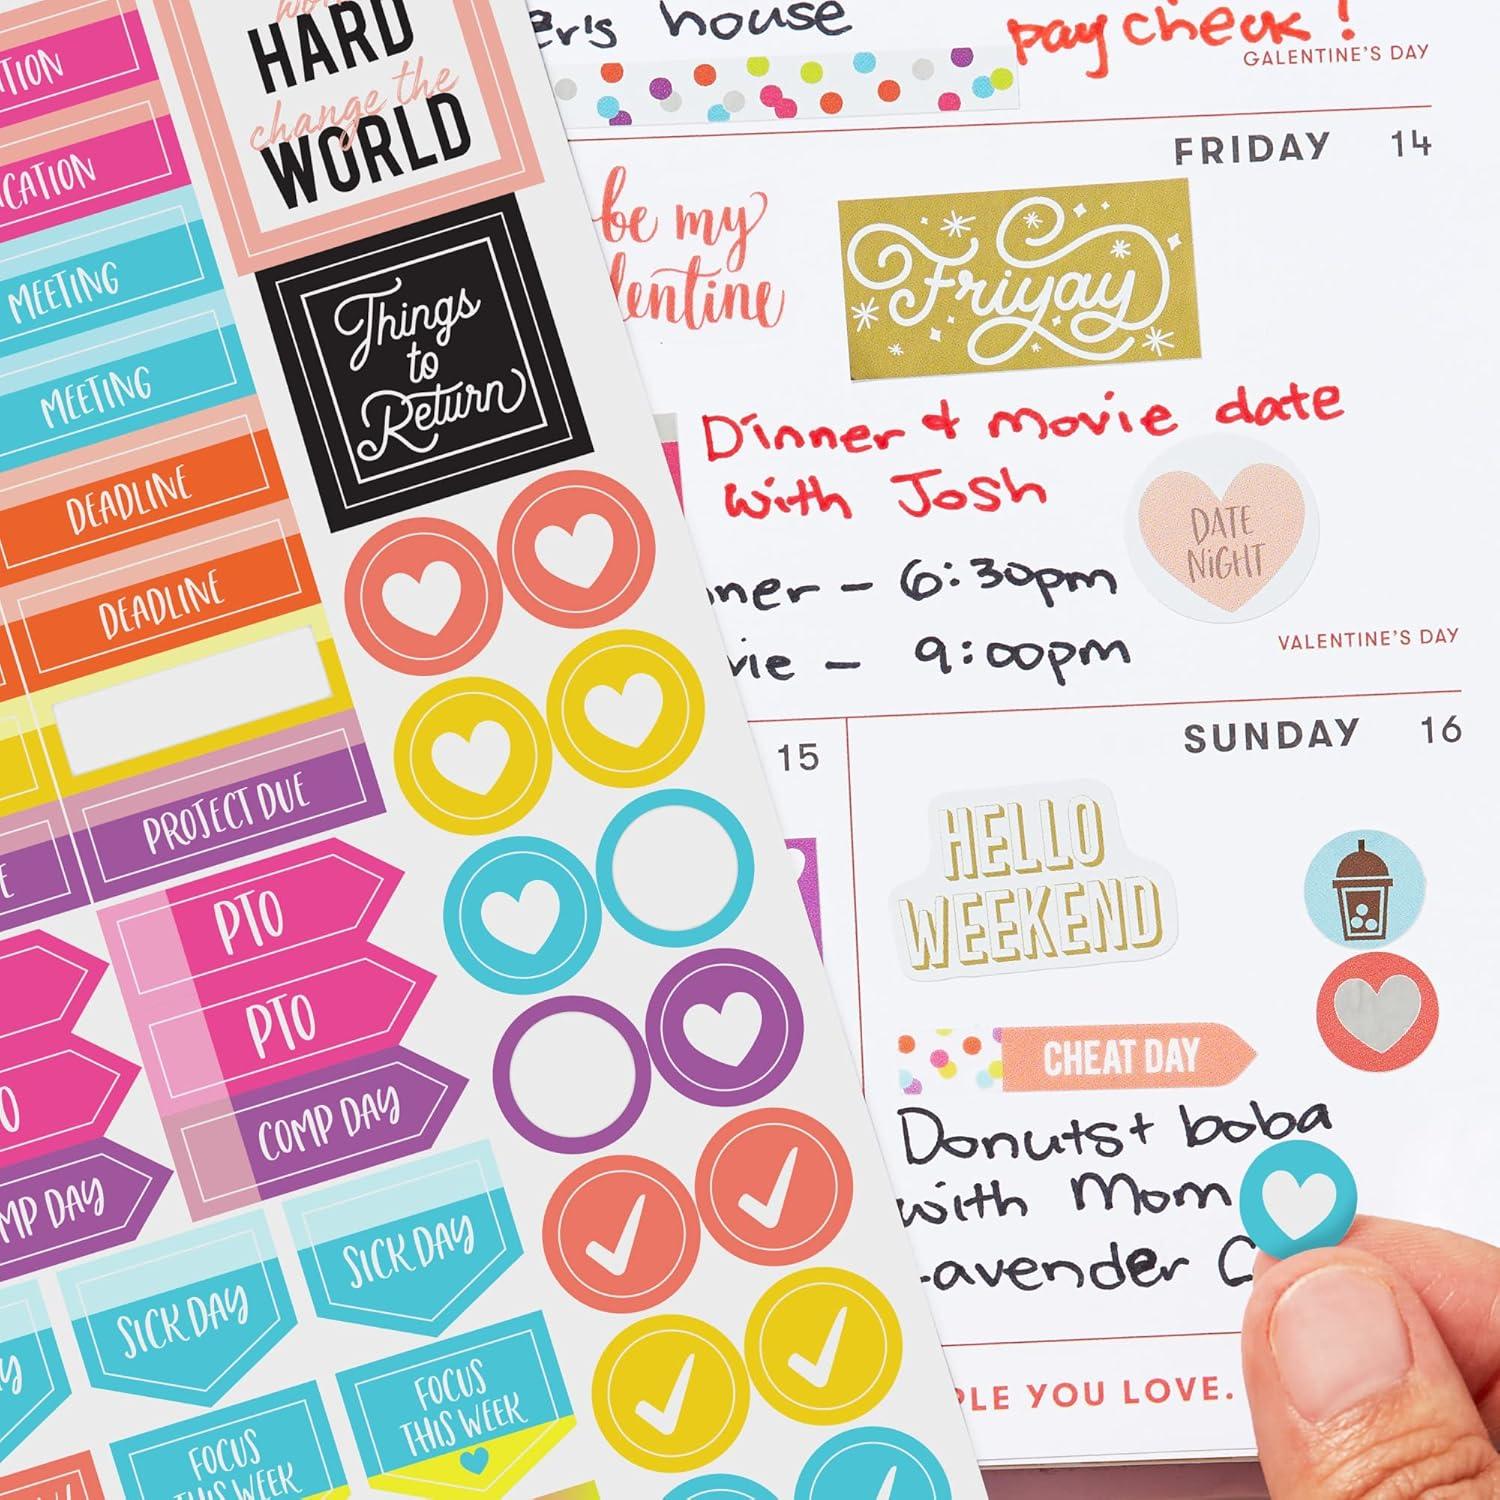 HARD
change the
WORLD
MEETING
MEETING
DEADLINE
DEADLINE
PROJECT DUE
PTO
PTO
COMP DAY
DAY
SICK DAY
SICK DAY
FOCUS
THIS WEEK
FOCUS
THIS WEEK
Things
to
Return
house
pay check!
GALENTINE'S DAY
FRIDAY 14
be my
Friyay
Dinner & movie date
with Josh
DATE
NIGHT
- 6:30pm
- 9:00pm
VALENTINE'S DAY
15
SUNDAY 16
HELLO
WEEKEND
CHEAT DAY
Donuts + boba
with Mom
YOU LOVE.